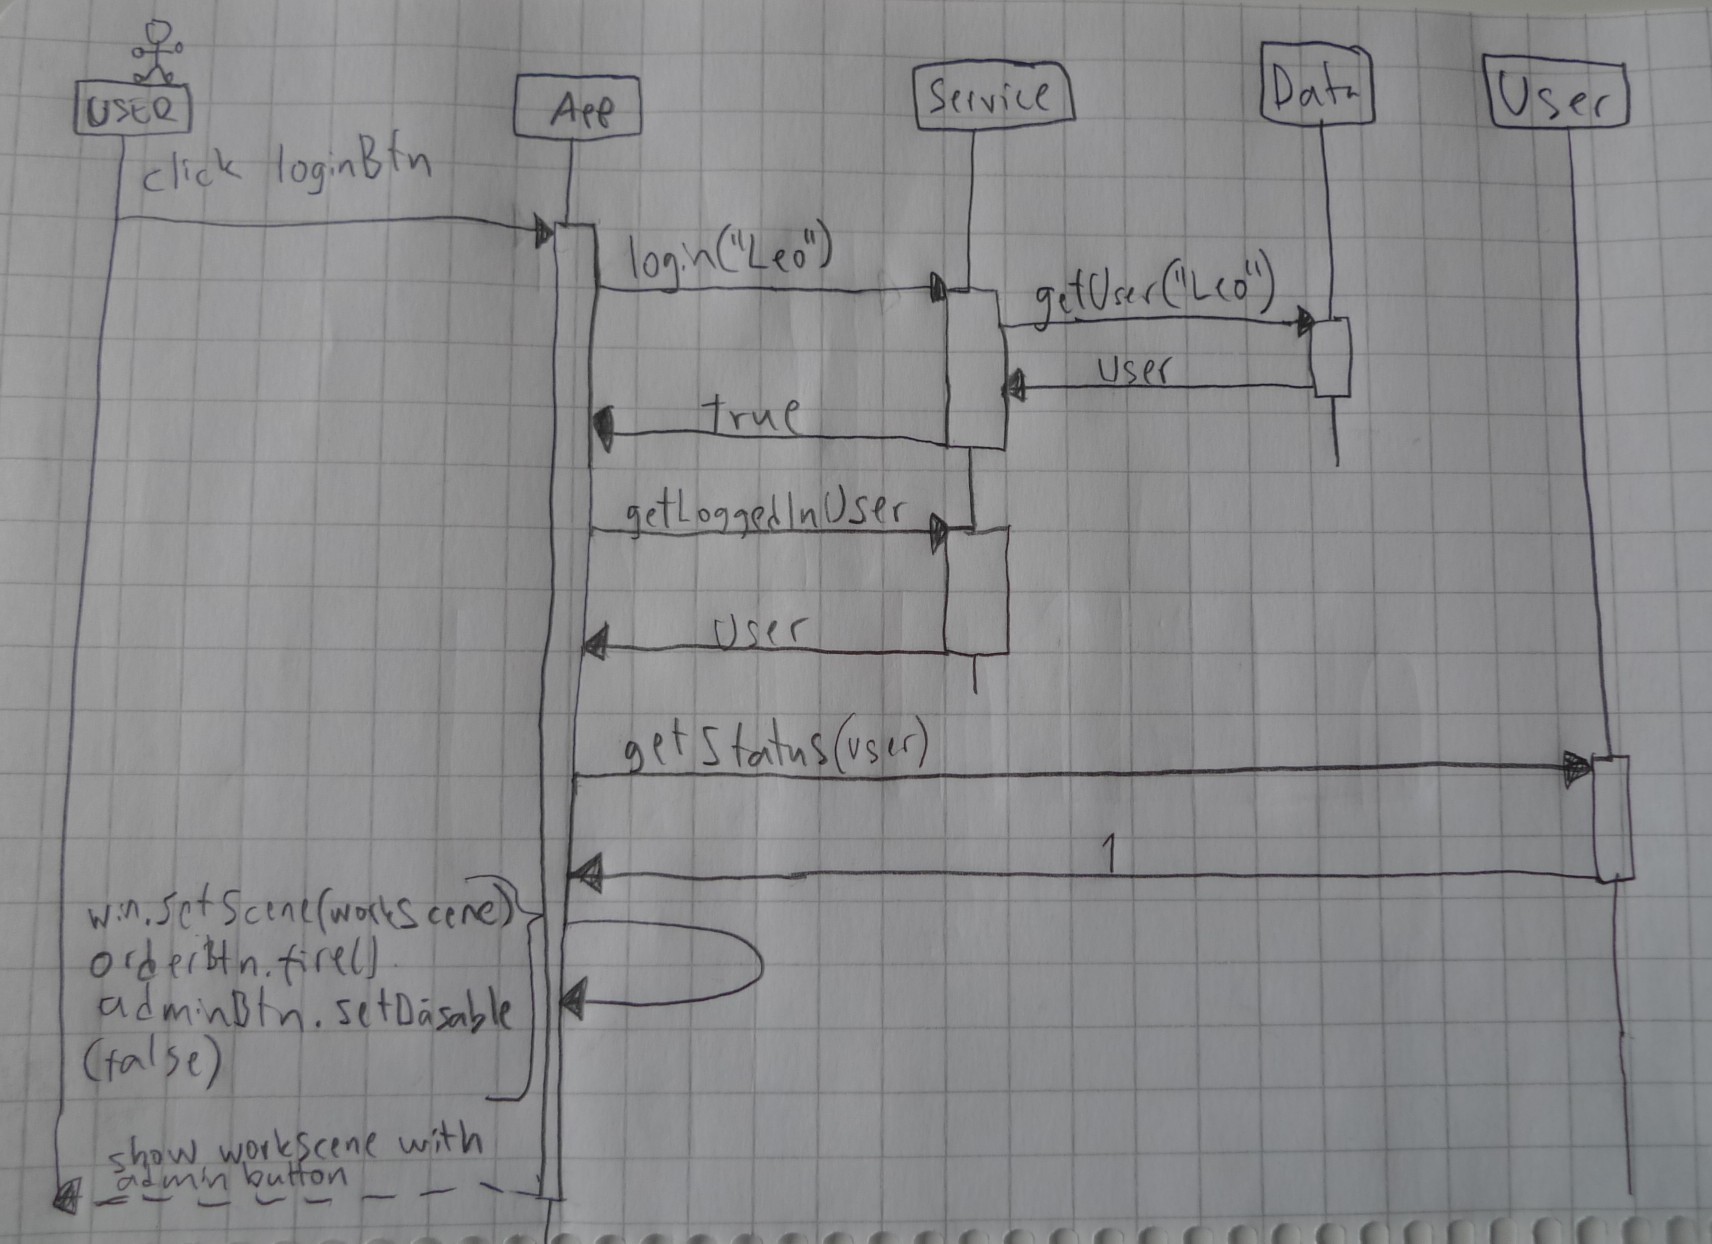 USER
App
Service
Data
User
click loginBtn
login("Leo")
getUser("Leo")
user
true
getLoggedInUser
User
getStatus(user)
1
win.setScene(workScene)
orderBtn.fire()
adminBtn.setDisable
(false)
show workscene with
admin button